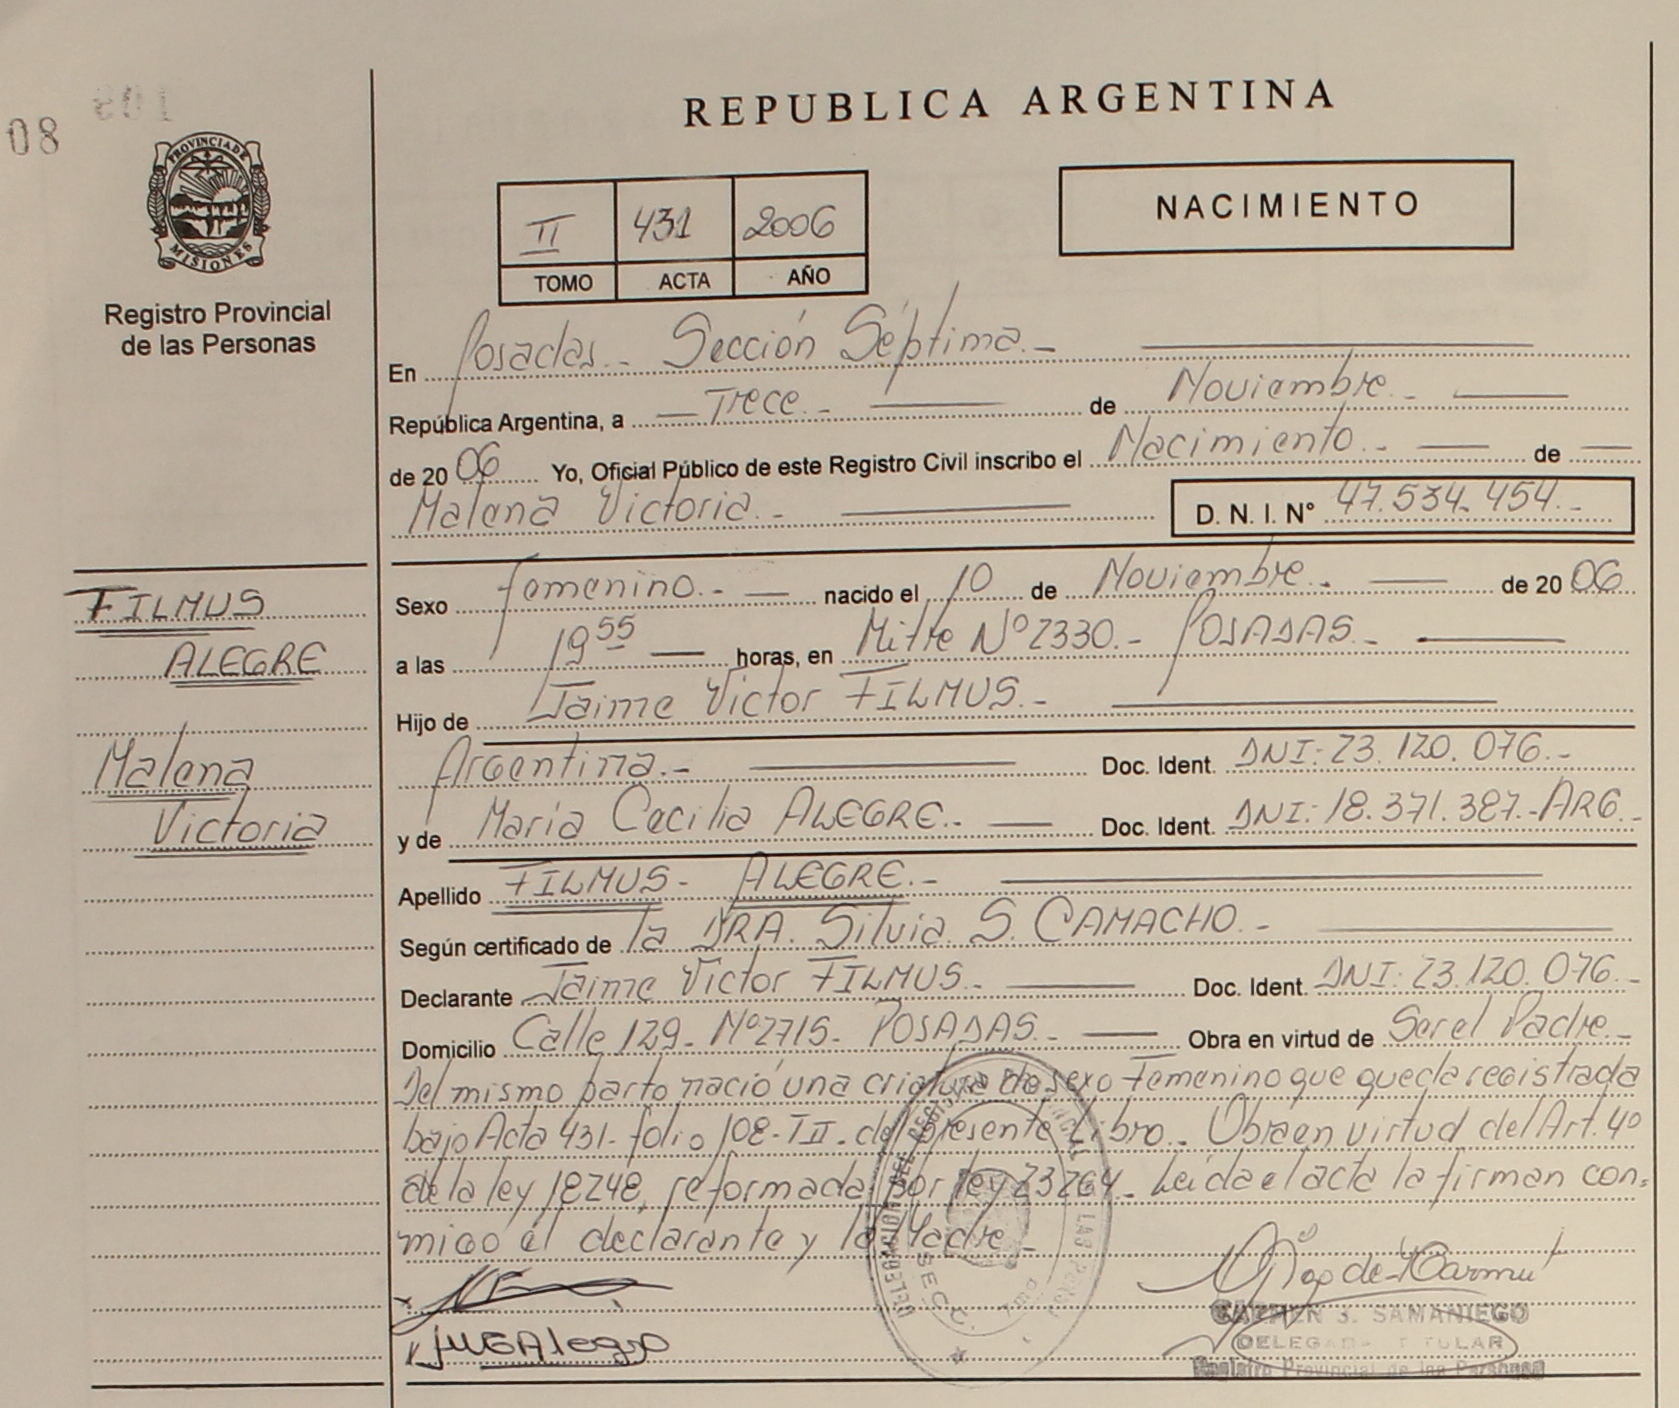 08
REPUBLICA ARGENTINA
PROVINCIA DE
MISIONES
Registro Provincial
de las Personas
II 431 2006
TOMO ACTA AÑO
NACIMIENTO
En Posadas.- Sección Séptima.-
República Argentina, a Trece.- de Noviembre.-
de 2006 Yo, Oficial Público de este Registro Civil inscribo el Nacimiento.- de
Malena Victoria.- D. N. I. N° 47.534.454.-
Sexo femenino.- nacido el 10 de Noviembre.- de 2006
a las 19 55 horas, en Mitre Nº 2330.- POSADAS.-
Hijo de Jaime Victor FILMUS.-
Argentina.- Doc. Ident. DNI: 23.120.076.-
y de María Cecilia ALEGRE.- Doc. Ident. DNI: 18.371.387.-ARG.-
Apellido FILMUS- ALEGRE.-
Según certificado de la DRA. Silvia S. CAMACHO.-
Declarante Jaime Victor FILMUS.- Doc. Ident. DNI: 23.120.076.-
Domicilio Calle 129- Nº 2715- POSADAS.- Obra en virtud de Ser el Padre.-
Del mismo parto nació una criatura de sexo Femenino que queda registrada
bajo Acta 431- folio 108-TII- del presente Libro.- Obra en virtud del Art. 4º
de la ley 18248, reformada por ley 23264- Leída el acta la firman con-
migo el declarante y la Madre.-
FILMUS
ALEGRE
Malena
Victoria
SECC.
CARMEN J. SAMANIEGO
DELEGADA TITULAR
Registro Provincial de las Personas